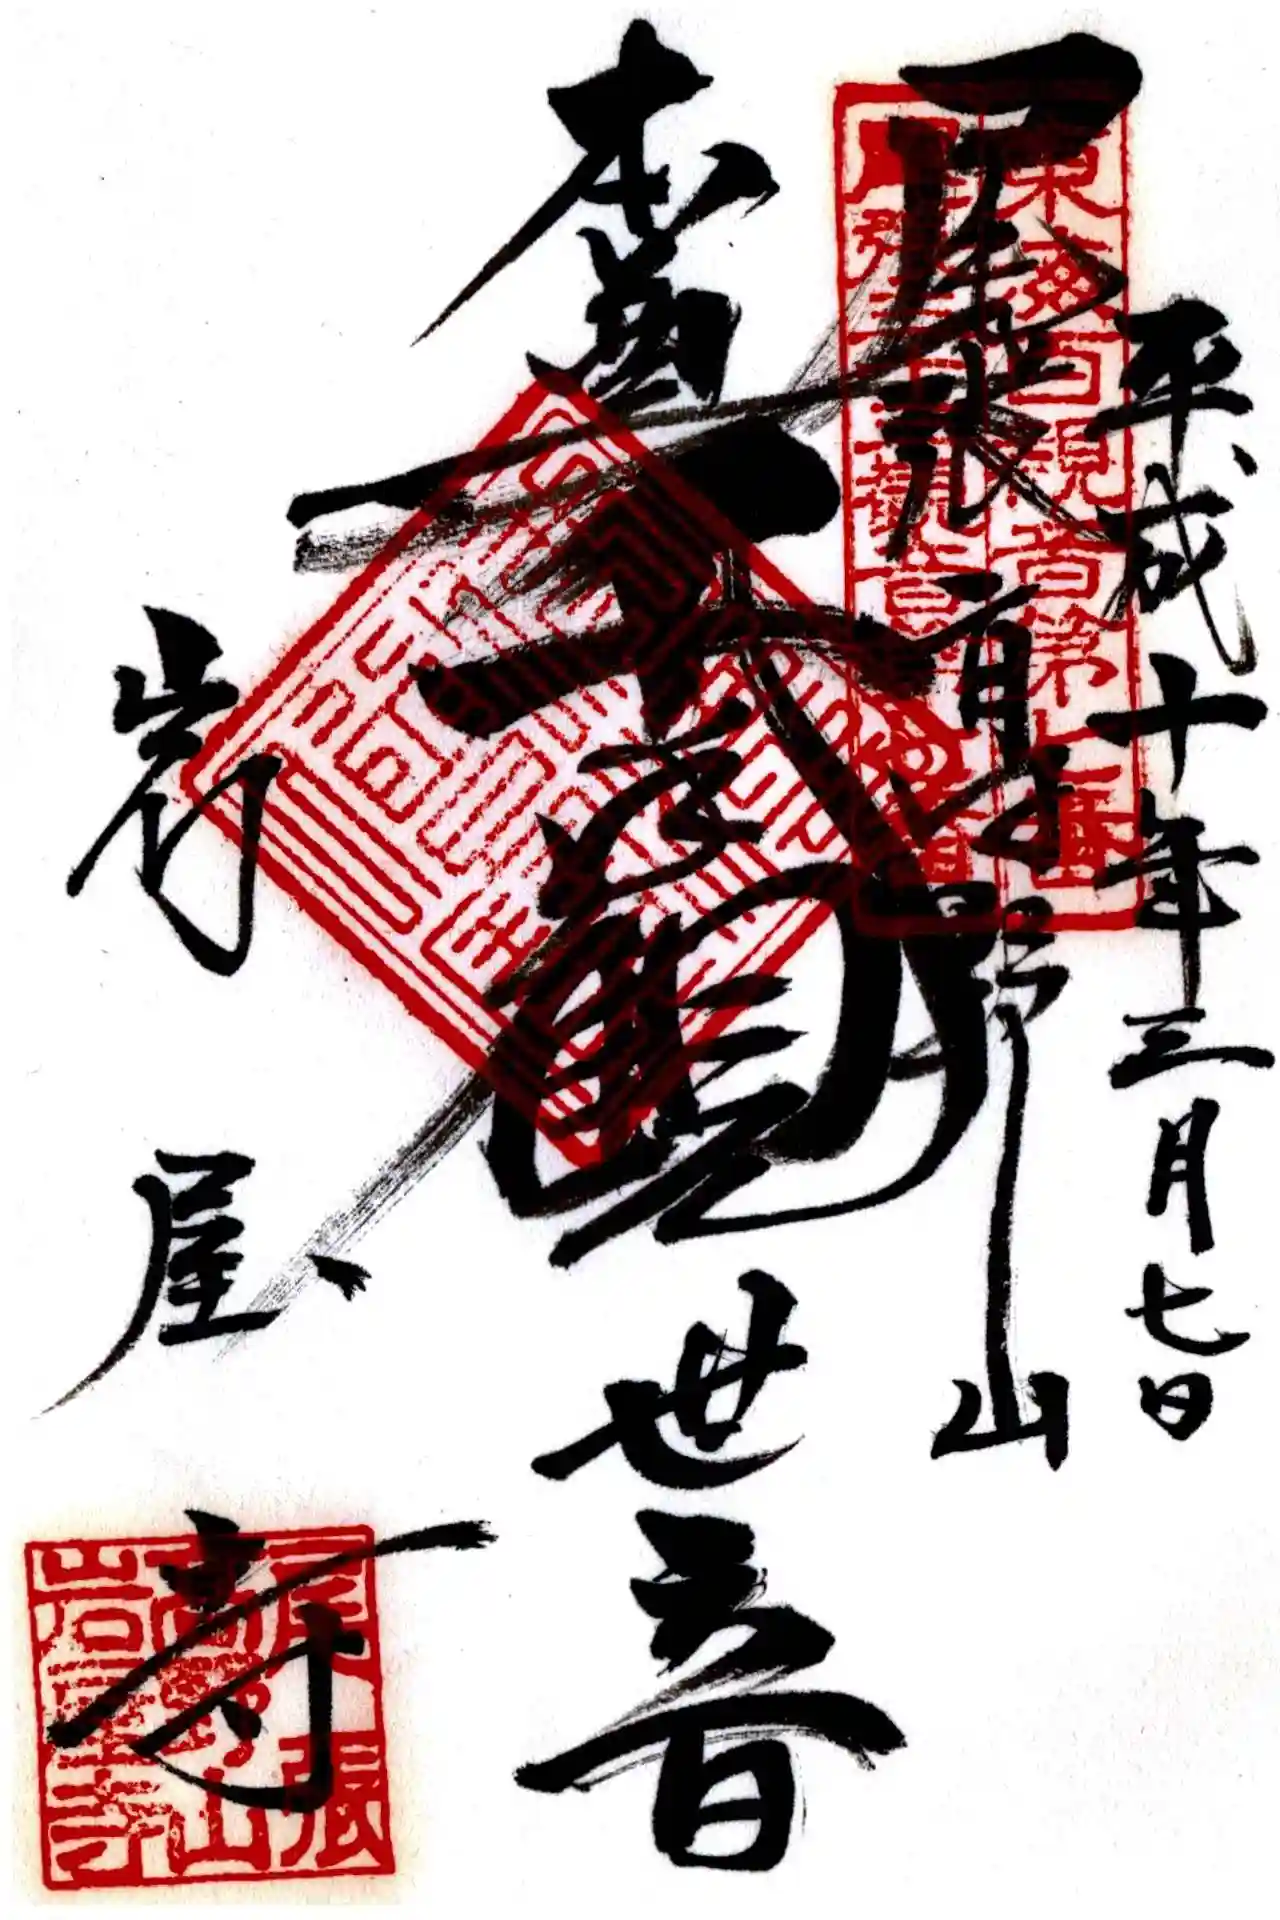 平成十年三月七日
東海百観音第
尾張三十三観音
尾張高野山
本尊
千手観世音
岩屋寺
尾張
高野山
岩屋寺